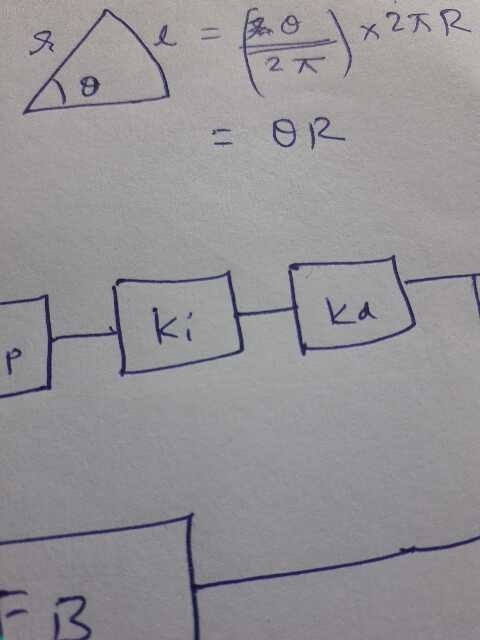 r l = (θ / 2π) × 2πR
θ
= θR
P Ki Kd
FB